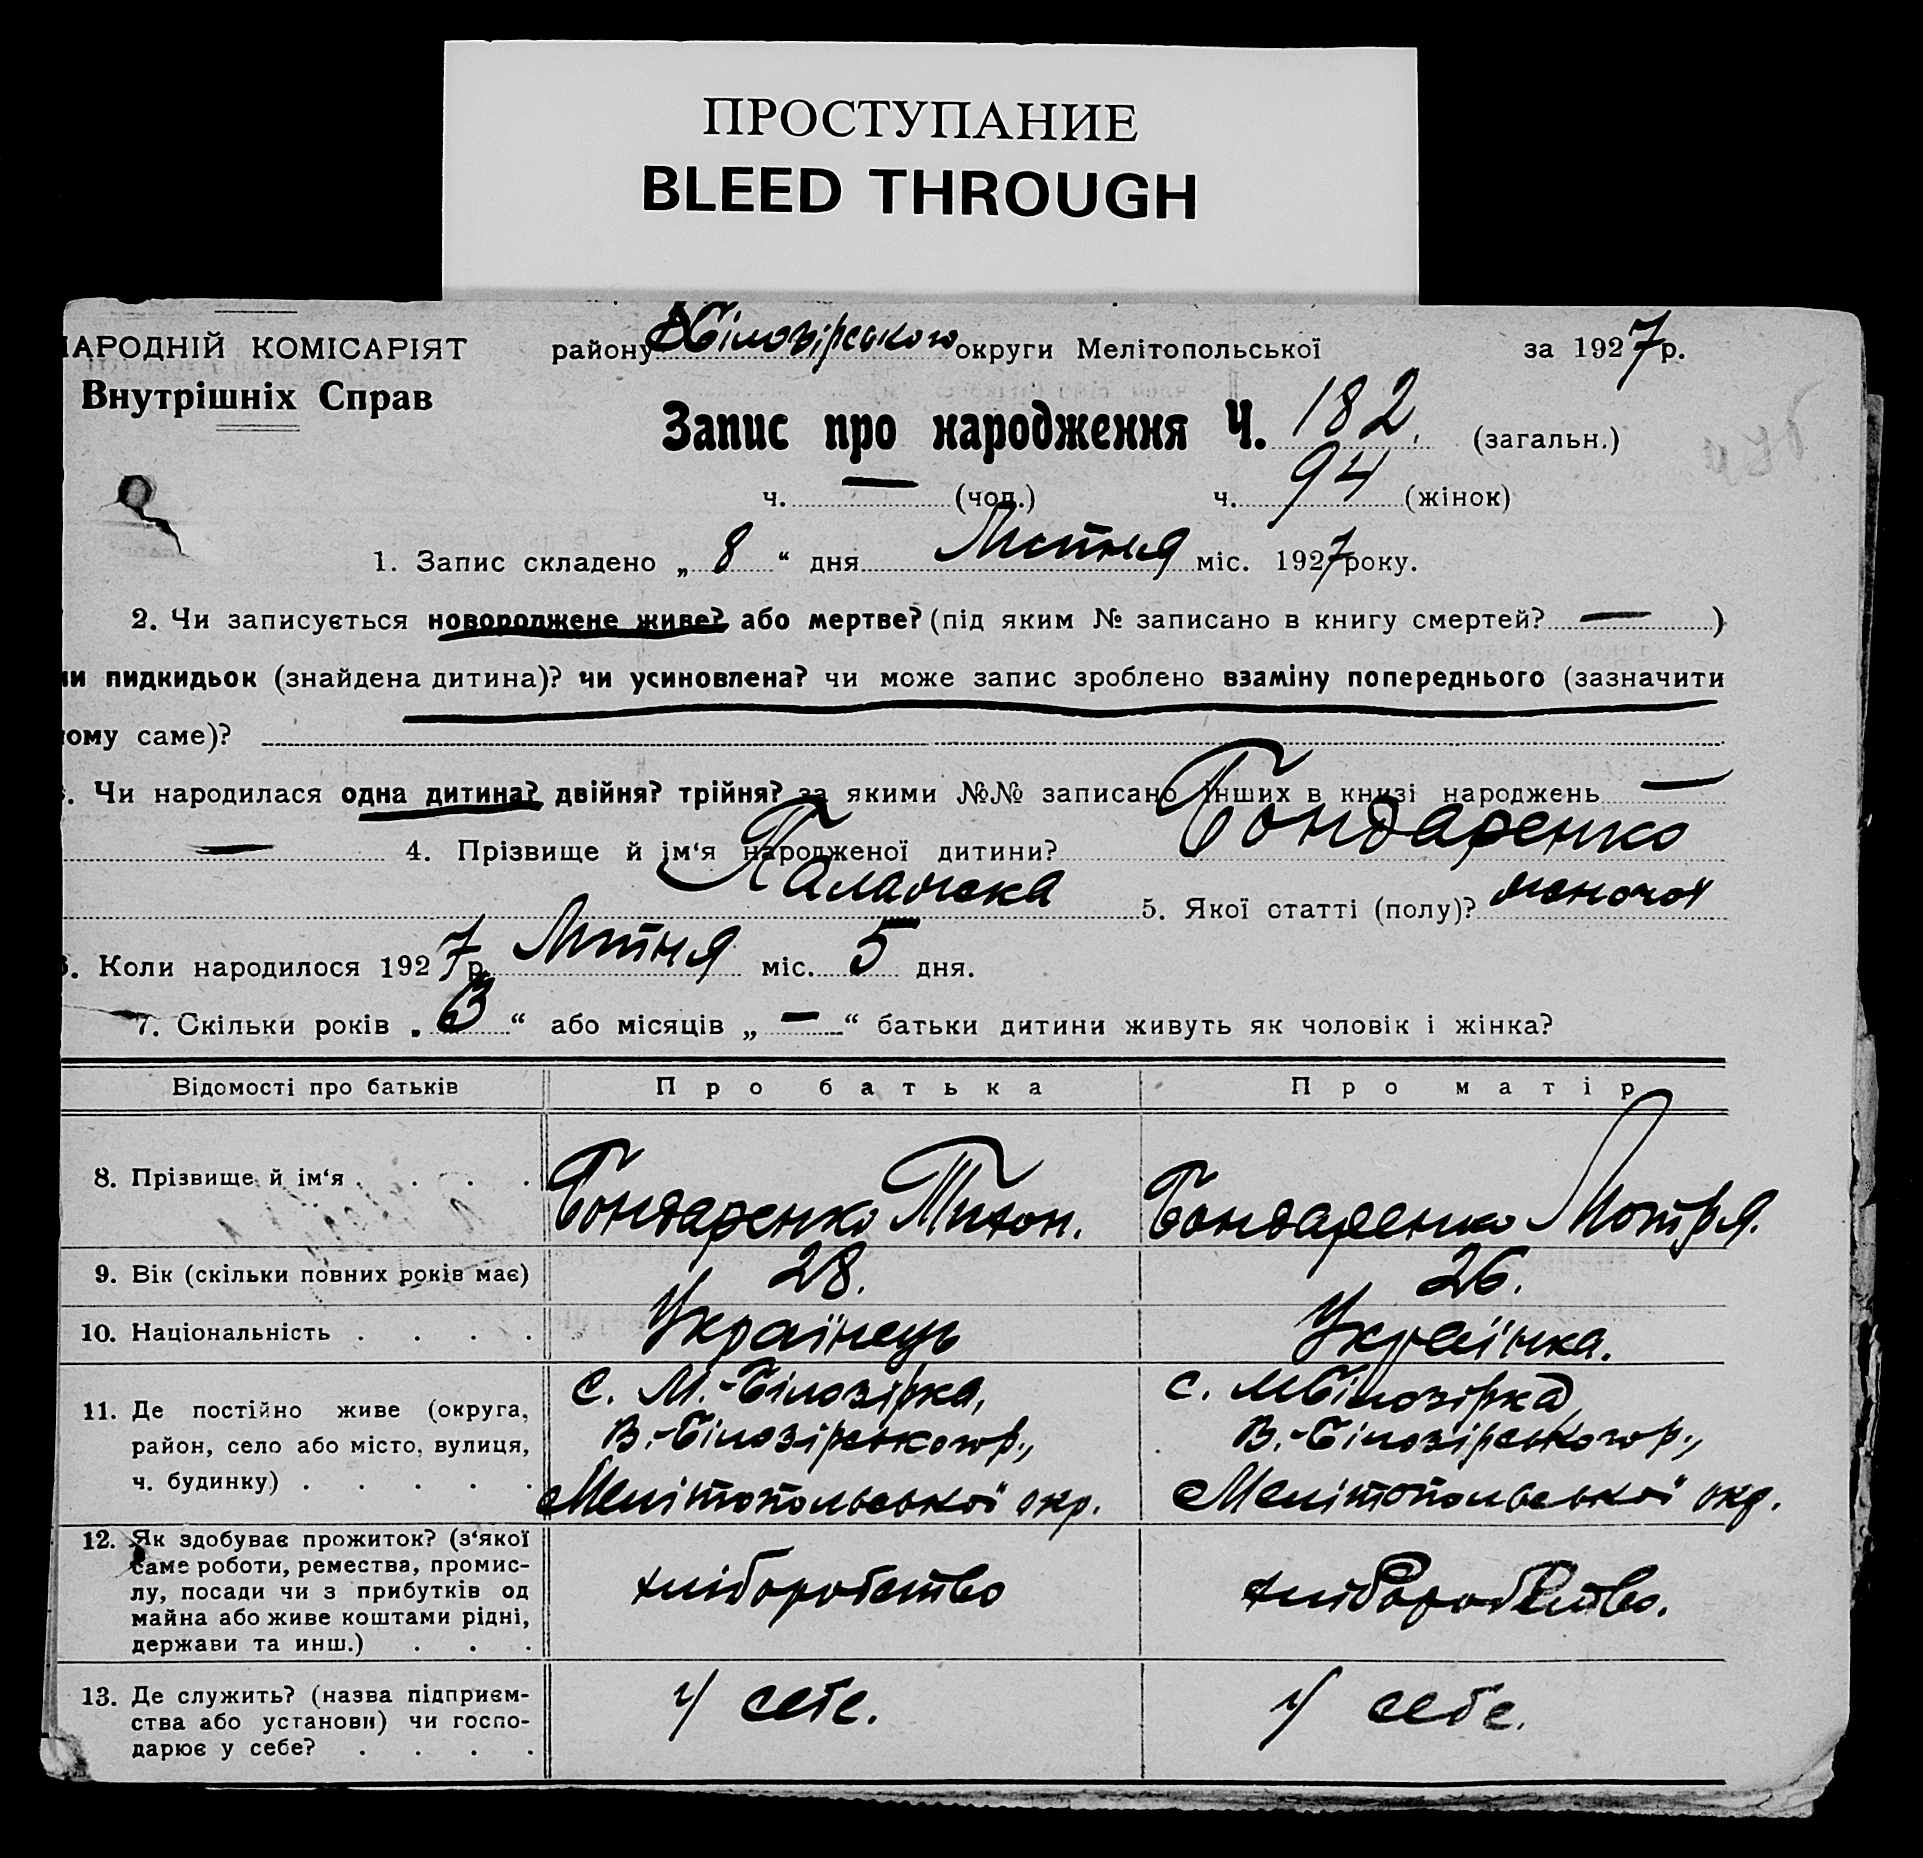 ПРОСТУПАНИЕ
BLEED THROUGH
НАРОДНІЙ КОМІСАРІЯТ району В Білозірського округи Мелітопольської за 1927 р.
Внутрішніх Справ
Запис про народження Ч. 182. (загальн.)
ч. — (чол.) ч. 94 (жінок)
1. Запис складено „ 8 “ дня Липня міс. 1927 року.
2. Чи записується новороджене живе? або мертве? (під яким № записано в книгу смертей? — )
чи пидкидьок (знайдена дитина)? чи усиновлена? чи може запис зроблено взаміну попереднього (зазначити
кому саме)?
3. Чи народилася одна дитина? двійня? трійня? за якими №№ записано інших в книзі народжень —
— 4. Прізвище й ім‘я народженої дитини? Бондаренко
Палажка 5. Якої статті (полу)? жіночої
6. Коли народилося 1927 р. Липня міс. 5 дня.
7. Скільки років „ 6 “ або місяців „ — “ батьки дитини живуть як чоловік і жінка?
Відомості про батьків Про батька Про матір
8. Прізвище й ім‘я . . . . Бондаренко Тихон. Бондаренко Мотря.
9. Вік (скільки повних років має) 28. 26.
10. Національність . . . . Українець Українка.
11. Де постійно живе (округа, с. М.-Білозірка, с. МБілозірка,
район, село або місто, вулиця, В.-Білозірського р., В.-Білозірського р.,
ч. будинку) . . . . . Мелітопольської окр. Мелітопольської окр.
12. Як здобуває прожиток? (з‘якої
саме роботи, ремества, промис-
лу, посади чи з прибутків од хліборобство хліборобство.
майна або живе коштами рідні,
держави та инш.) . . .
13. Де служить? (назва підприєм- у себе. у себе.
ства або установи) чи госпо-
дарює у себе? . . . .